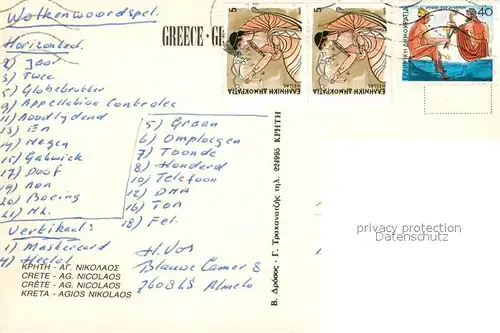 Wolkenwoordspel.
GREECE · GR
Horizontaal:
2) Jaar
3) Twee
5) Globetrotter
9) Appellation Controlee
11) Noodlijdend
13) En
14) Negen
15) Gatwick
17) Doof
19) Aan
20) Boeing
21) NL.
Vertikaal:
1) Mastercard
4) Heelal
5) Graan
6) Omploegen
7) Toonde
8) Honderd
10) Telefoon
12) DNA
16) Ton
18) Fel.
H. Vos
Almelo
5
ΕΛΛΗΝΙΚΗ ΔΗΜΟΚΡΑΤΙΑ
HELLAS
5
ΕΛΛΗΝΙΚΗ ΔΗΜΟΚΡΑΤΙΑ
HELLAS
40
ΕΛΛΗΝΙΚΗ ΔΗΜΟΚΡΑΤΙΑ
Β. Δρόσος - Γ. Τραχανατζής τηλ. 224995 ΚΡΗΤΗ
privacy protection
Datenschutz
ΚΡΗΤΗ - ΑΓ. ΝΙΚΟΛΑΟΣ
CRETE - AG. NICOLAOS
CRÈTE - AG. NICOLAOS
KRETA - AGIOS NIKOLAOS